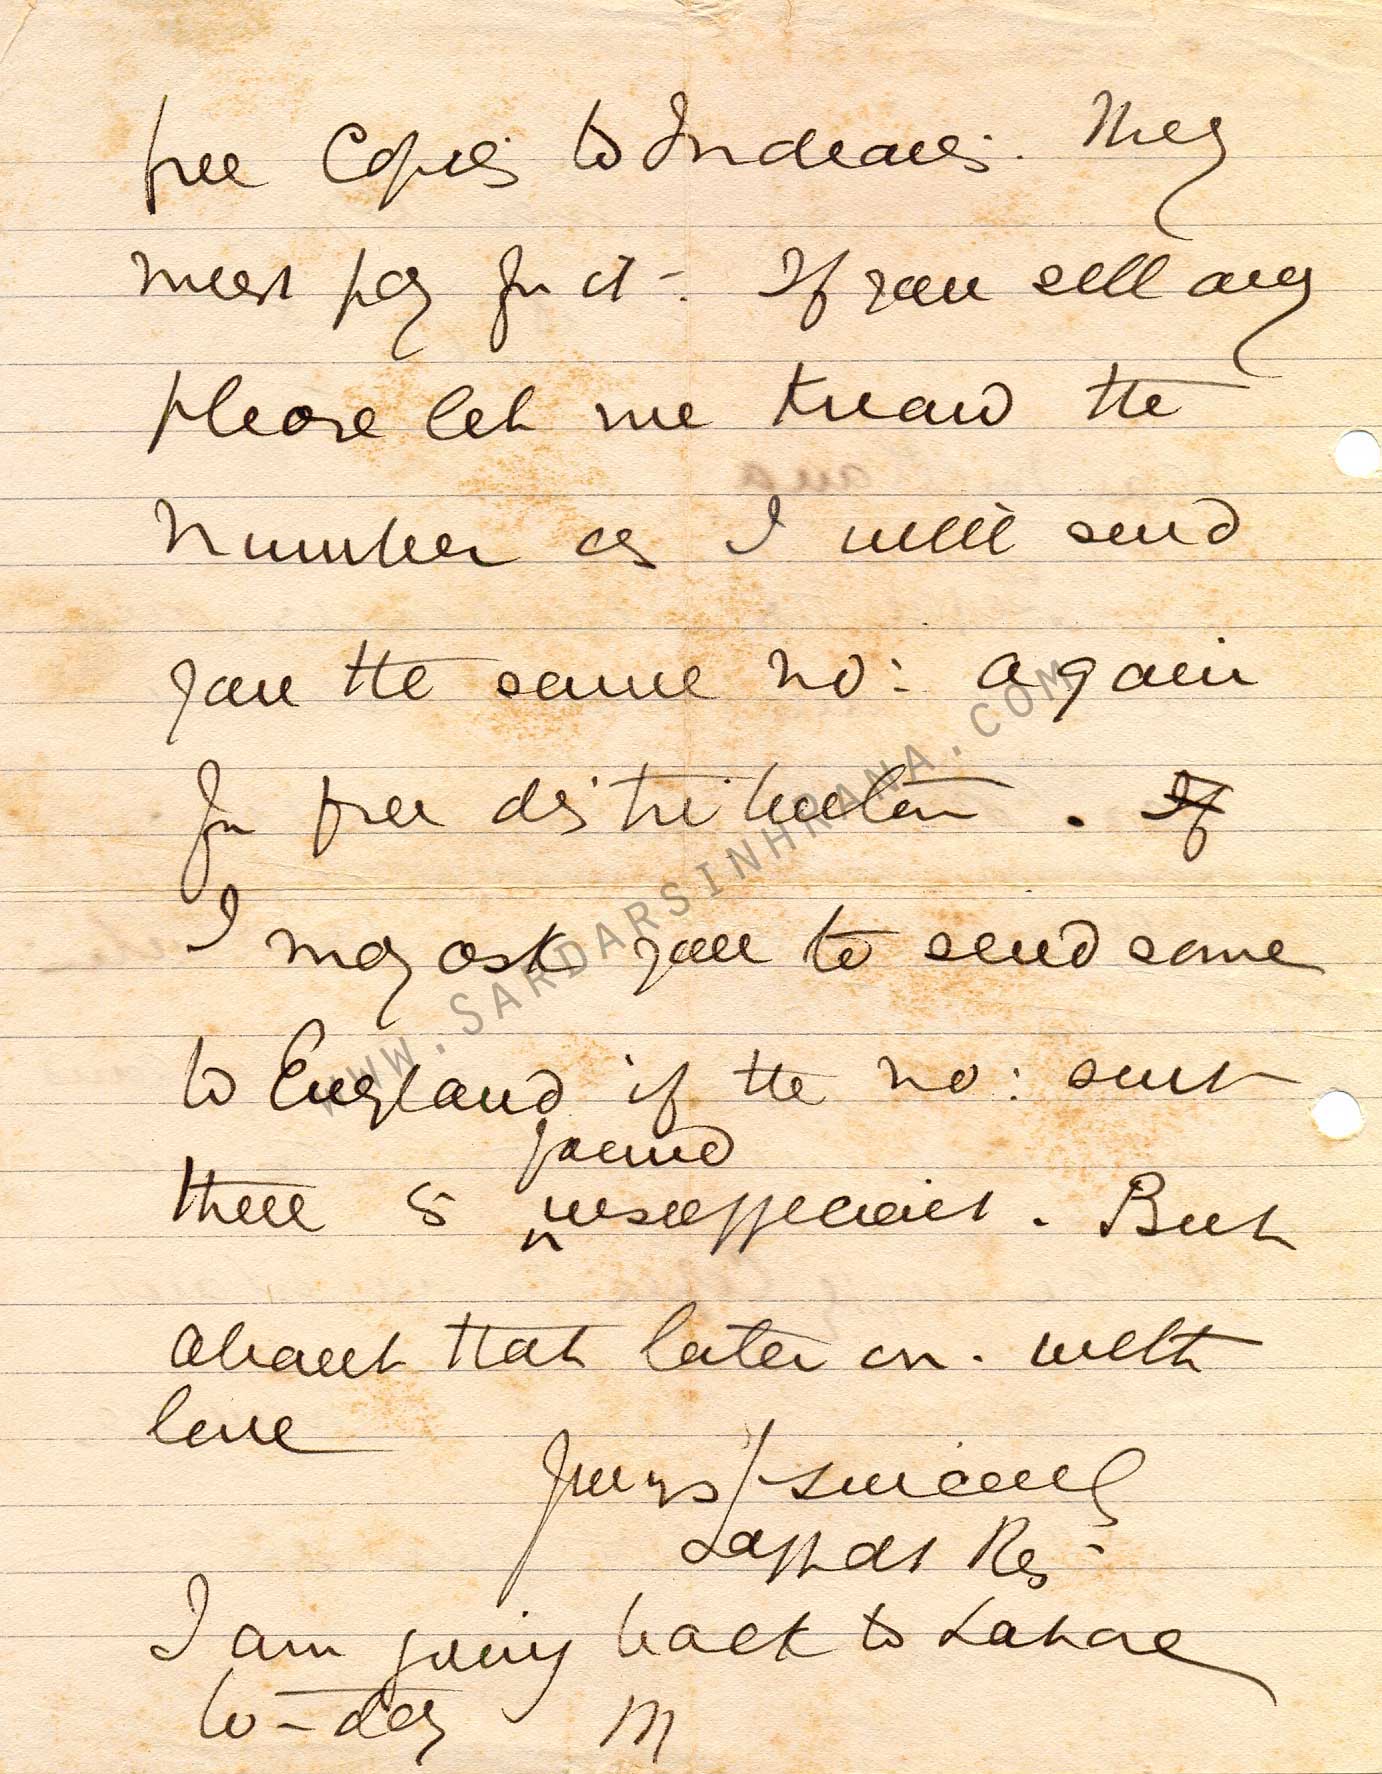 free copies to Indians. They
must pay for it -. If you sell any
please let me know the
number as I will send
you the same no: again
for free distribution. If
I may ask you to send some
to England if the no: sent
found
there is insufficient. But
about that later on. With
love
Yours sincerely
Lajpat Rai
I am going back to Lahore
to-day
WWW.SARDARSINHRANA.COM